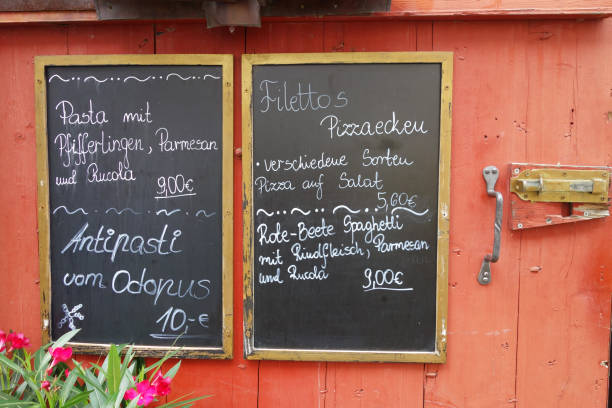 Pasta mit
Pfifferlingen, Parmesan
und Rucola
9,00€
Antipasti
vom Odopus
10,-€
Filettos
Pizzaecken
• verschiedene Sorten
Pizza auf Salat
5,60€
Rote-Beete Spaghetti
mit Rindfleisch, Parmesan
und Rucola 9,00€